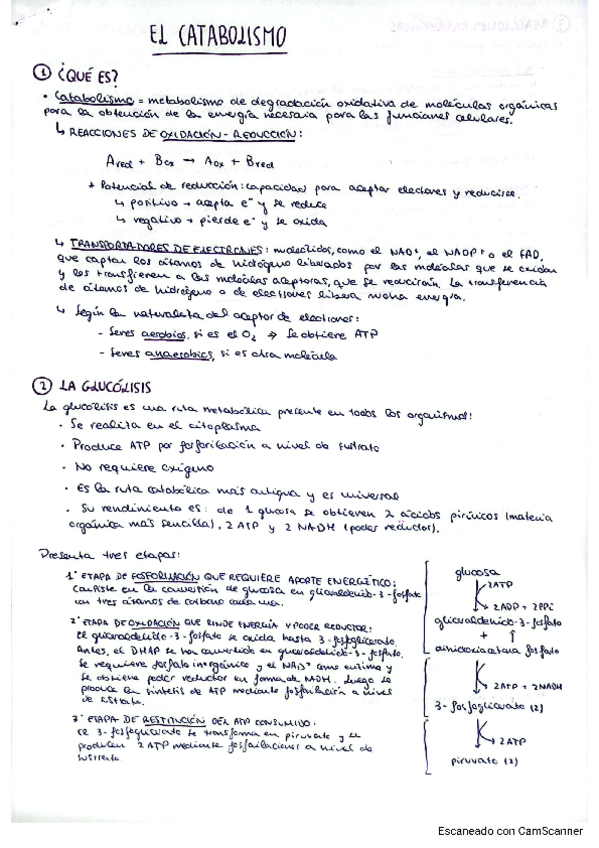 EL CATABOLISMO
① ¿QUÉ ES?
• Catabolismo = metabolismo de degradación oxidativa de moléculas orgánicas
para la obtención de la energía necesaria para las funciones celulares.
↳ REACCIONES DE OXIDACIÓN - REDUCCIÓN:
Ared + Box → Aox + Bred
* Potencial de reducción: capacidad para aceptar electrones y reducirse.
↳ positivo → acepta e⁻ y se reduce
↳ negativo → pierde e⁻ y se oxida
↳ TRANSPORTADORES DE ELECTRONES: nucleótidos, como el NAD⁺, el NADP⁺ o el FAD,
que captan los átomos de hidrógeno liberados por las moléculas que se oxidan
y los transfieren a las moléculas aceptoras, que se reducirán. La transferencia
de átomos de hidrógeno o de electrones libera mucha energía.
↳ Según la naturaleza del aceptor de electrones:
- Seres aerobios, si es el O₂ → Se obtiene ATP
- Seres anaerobios, si es otra molécula
② LA GLUCÓLISIS
La glucólisis es una ruta metabólica presente en todos los organismos:
· Se realiza en el citoplasma
· Produce ATP por fosforilación a nivel de sustrato
· No requiere oxígeno
· Es la ruta catabólica más antigua y es universal
· Su rendimiento es: de 1 glucosa se obtienen 2 ácidos pirúvicos (materia
orgánica más sencilla), 2 ATP y 2 NADH (poder reductor).
Presenta tres etapas:
1ª ETAPA DE FOSFORILACIÓN QUE REQUIERE APORTE ENERGÉTICO:
Consiste en la conversión de glucosa en gliceraldehído-3-fosfato
con tres átomos de carbono cada una.
2ª ETAPA DE OXIDACIÓN QUE RINDE ENERGÍA Y PODER REDUCTOR:
El gliceraldehído-3-fosfato se oxida hasta 3-fosfoglicerato.
Antes, el DHAP se ha convertido en gliceraldehído-3-fosfato.
Se requiere fosfato inorgánico y el NAD⁺ como enzima y
se obtiene poder reductor en forma de NADH. Luego se
produce la síntesis de ATP mediante fosforilación a nivel
de sustrato.
3ª ETAPA DE RESTITUCIÓN DEL ATP CONSUMIDO:
El 3-fosfoglicerato se transforma en piruvato y se
producen 2 ATP mediante fosforilaciones a nivel de
sustrato.
glucosa
2ATP
2ADP + 2PPi
gliceraldehído-3-fosfato
+
dihidroxiacetona fosfato
2ATP + 2NADH
3-fosfoglicerato (2)
2ATP
piruvato (2)
Escaneado con CamScanner